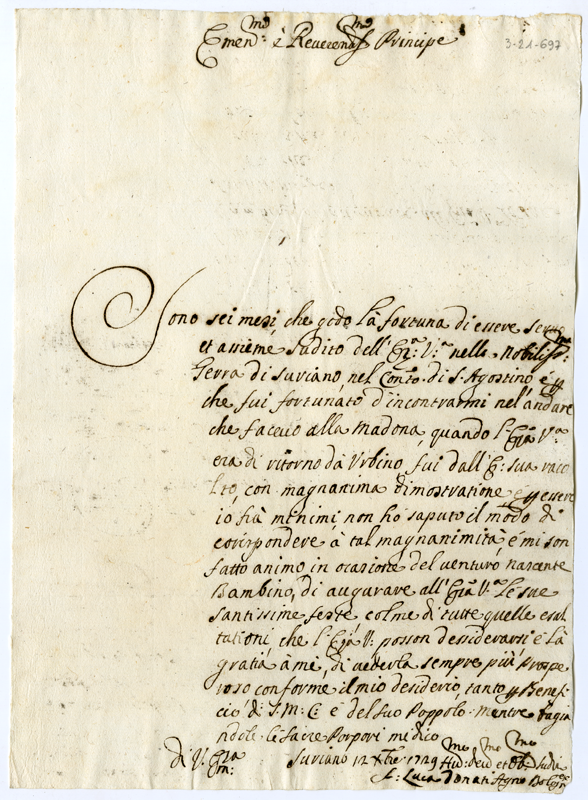 Emen.mo è Reverend.mo Principe
3-21-697
Sono sei mesi che godo là fortuna di essere servo
et assieme sudito dell' Em.a V.a nella Nobiliss.ma
Terra di Suriano, nel Con.to di S. Agostino, è p
che fui fortunato d'incontrarmi nel' andare
che facevo alla Madona quando l' Em.a V.a
era di ritorno dà Urbino, fui dall' E: sua raco
lto, con magnanima dimostratione, e p essere
io frà minimi non ho saputo il modo di
corispondere à tal magnanimità, è mi son
fatto animo in ocasione del venturo nascente
Bambino, di augurare all' Em.a V.a le sue
santissime feste colme di tutte quelle esul
tationi, che l' Em.a V: posson dessiderarsi è là
gratia à me, di vederla sempre più prospe
roso conforme il mio desiderio, tanto p Benefi
cio di S. M. C. è del suo Poppolo mentre bagia
ndole le sacre Porpori me dico
di V. Em.za
Suriano 12 Xbre 1729 Hu.mo dev.mo et Ob.mo Sudi
f: Luca Donati Agno